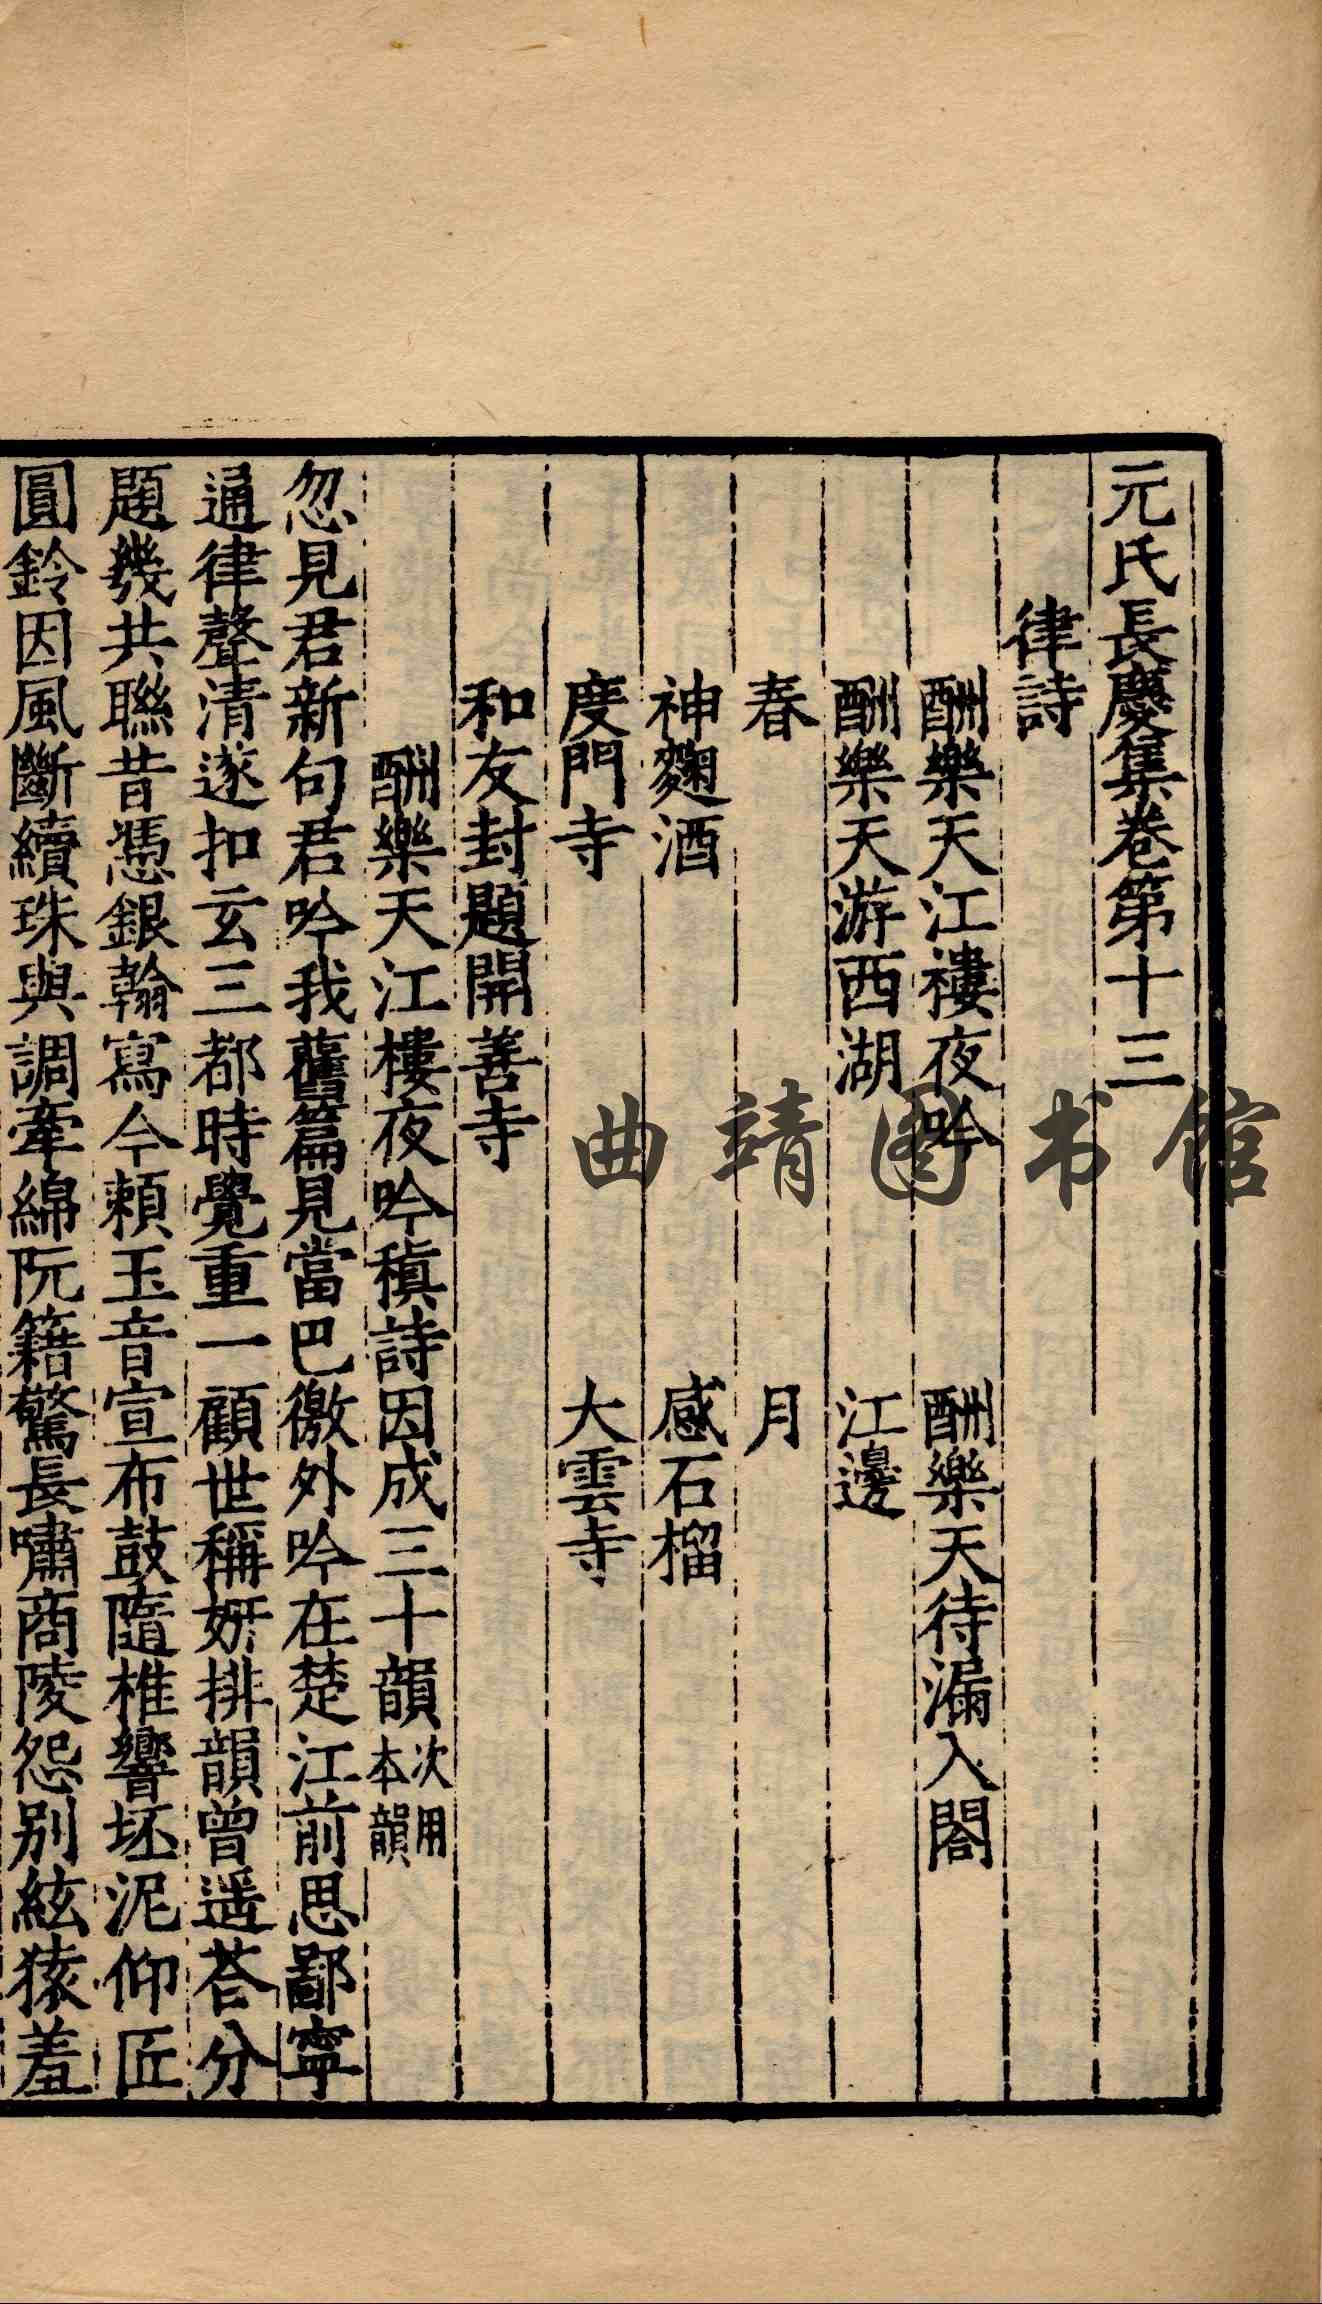 元氏長慶集卷第十三
律詩
酬樂天江樓夜吟　酬樂天待漏入閤
酬樂天游西湖　江邊
春　月
神麴酒　感石榴
度門寺　大雲寺
和友封題開善寺
酬樂天江樓夜吟稹詩因成三十韻次用本韻
忽見君新句君吟我舊篇見當巴徼外吟在楚江前思鄙寧
通律聲清遂扣玄三都時覺重一顧世稱妍排韻曾遥荅分
題幾共聯昔憑銀翰寫今賴玉音宣布鼓隨椎響坯泥仰匠
圓鈴因風斷續珠與調牽綿阮籍驚長嘯商陵怨别絃猿羞
曲靖图书馆